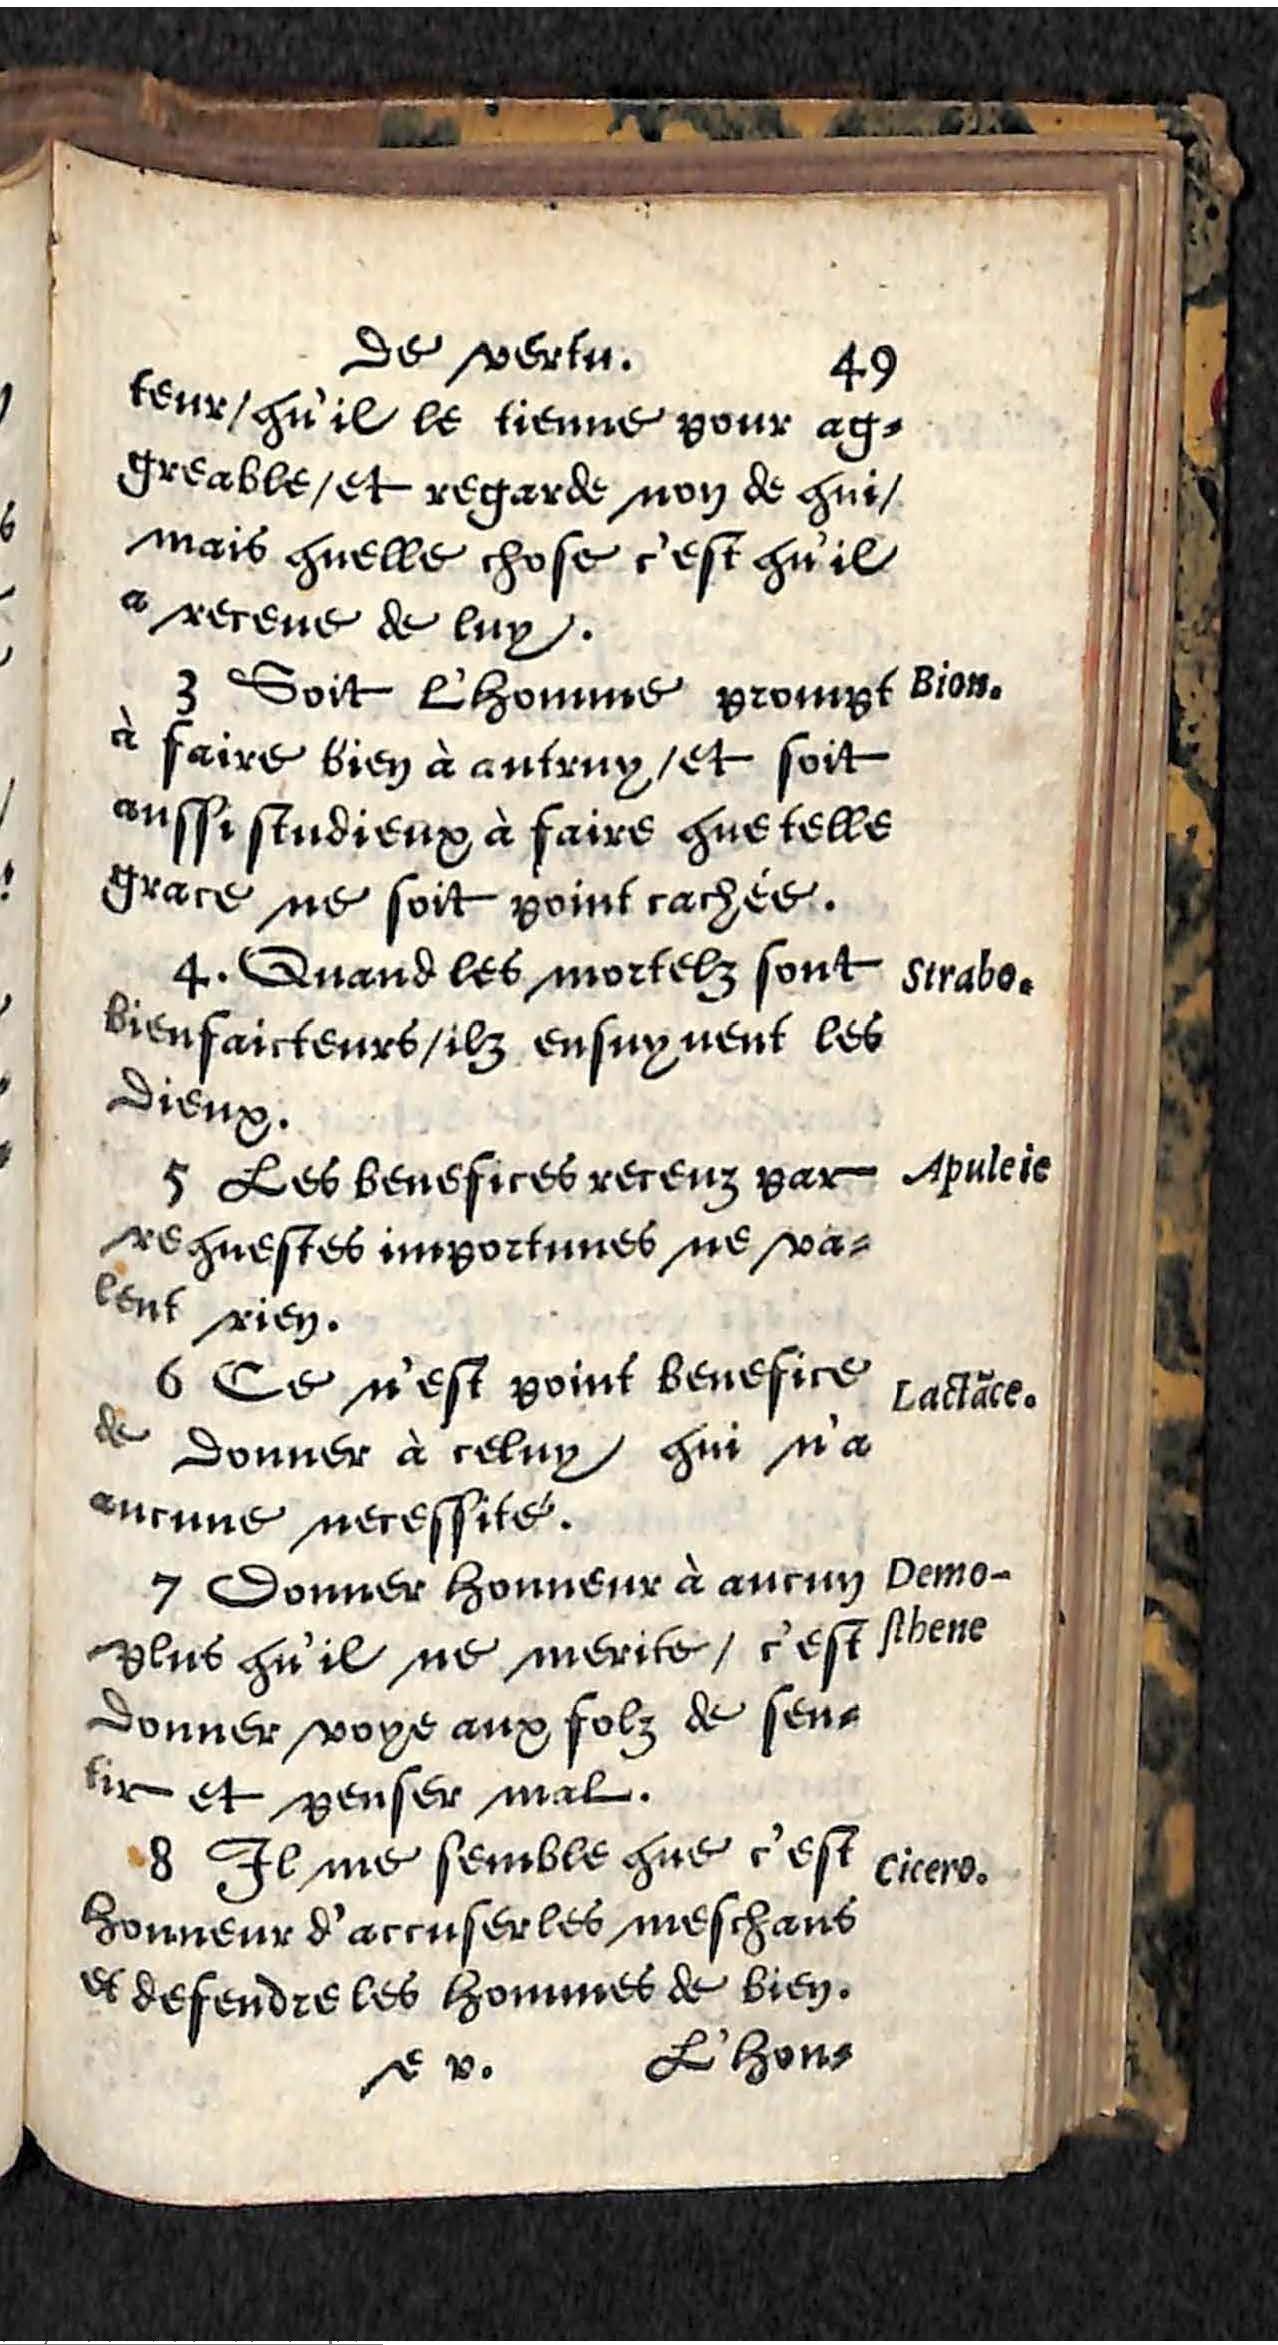 de vertu. 49
teur/qu'il le tienne pour ag-
greable/et regarde non de qui/
mais quelle chose c'est qu'il
a receue de luy.
3 Soit L'homme prompt Bion.
à faire bien à autruy/et soit
aussi studieux à faire que telle
grace ne soit point cachée.
4. Quand les mortelz sont Strabo.
bienfaicteurs/ilz ensuyuent les
Dieux.
5 Les benefices receuz par Apuleie
requestes importunes ne va-
lent rien.
6 Ce n'est point benefice Lactāce.
de donner à celuy qui n'a
aucune necessité.
7 Donner honneur à aucun Demo-
plus qu'il ne merite/ c'est sthene
donner voye aux folz de sen-
tir et penser mal.
8 Il me semble que c'est Cicero.
honneur d'accuser les meschans
et defendre les hommes de bien.
e v. L'hon-